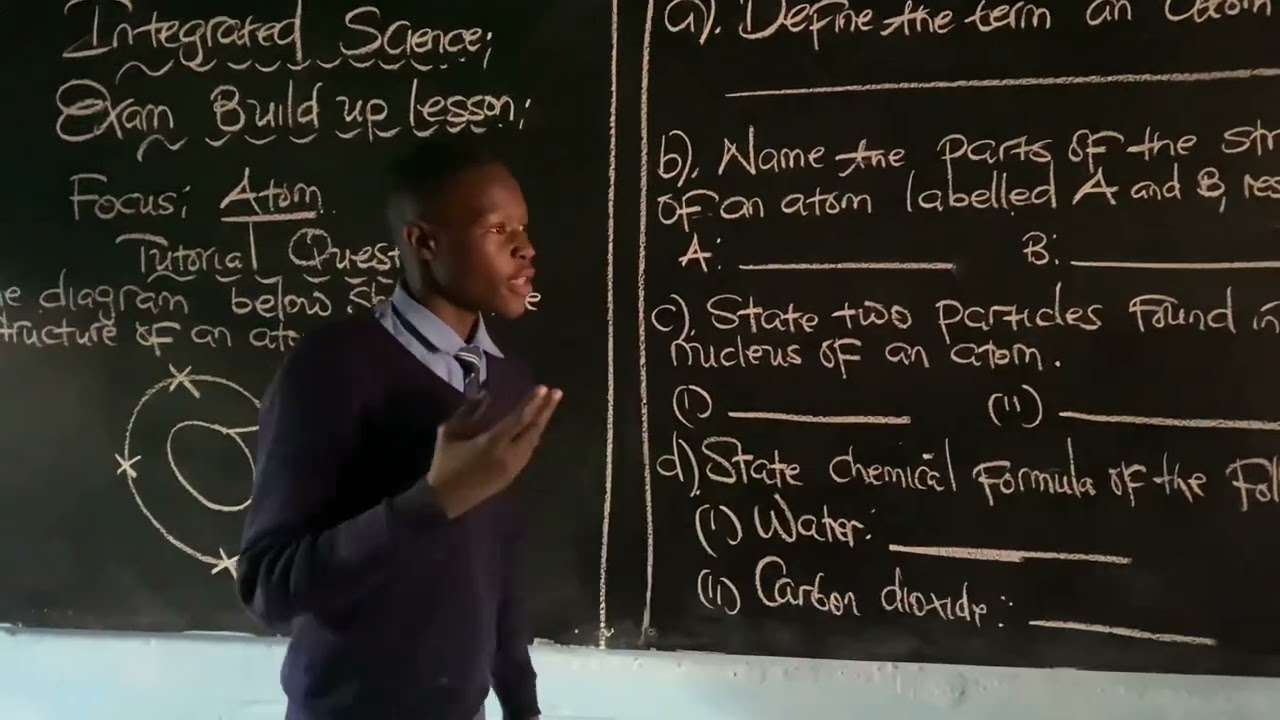 Integrated Science;
Exam Build up lesson;
Focus; Atom
Tutorial Quest
e diagram below sh e
tructure of an ato
a). Define the term an atom
b). Name the parts of the str
of an atom labelled A and B, res
A: B:
c). State two particles found in
nucleus of an atom.
(i) (ii)
d). State chemical formula of the fol
(i) Water:
(ii) Carbon dioxide: